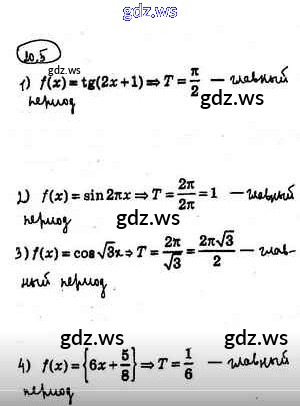 gdz.ws
20.5
gdz.ws
1) f(x) = tg(2x + 1) ⇒ T = π/2 — главный
период
gdz.ws
gdz.ws
2) f(x) = sin 2πx ⇒ T = 2π/2π = 1 — главный
период
gdz.ws
gdz.ws
3) f(x) = cos √3x ⇒ T = 2π/√3 = 2π√3/2 — глав-
ный период
gdz.ws
gdz.ws
4) f(x) = {6x + 5/8} ⇒ T = 1/6 — главный
период
gdz.ws